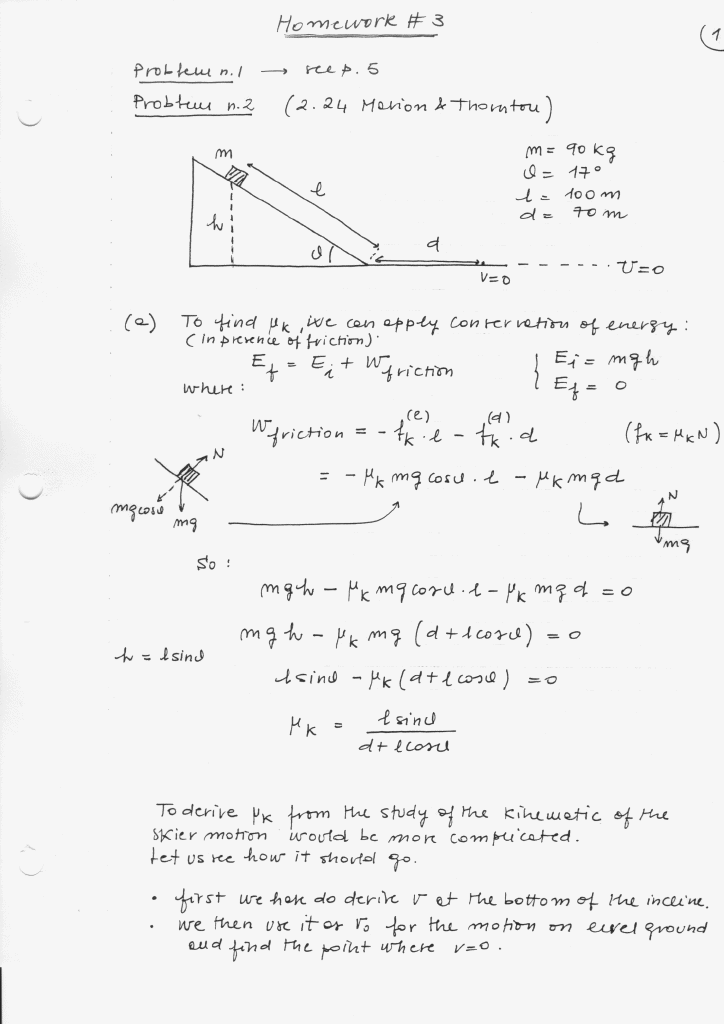 Homework # 3
1
Problem n.1 → see p. 5
Problem n.2 (2.24 Marion & Thornton)
m
l
h
ϑ
d
v=0
U=0
m = 90 kg
ϑ = 17°
l = 100 m
d = 70 m
(a) To find μk, we can apply conservation of energy:
(in presence of friction):
Ef = Ei + Wfriction { Ei = mgh
where: { Ef = 0
Wfriction = - fk^(l)·l - fk^(d)·d (fk = μkN)
= - μk mg cosϑ·l - μk mgd
N
mgcosϑ
mg
N
mg
So:
mgh - μk mg cosϑ·l - μk mgd = 0
mgh - μk mg (d + l cosϑ) = 0
h = l sinϑ
l sinϑ - μk (d + l cosϑ) = 0
μk = l sinϑ / d + l cosϑ
To derive μk from the study of the kinematic of the
skier motion would be more complicated.
Let us see how it should go.
• first we have do derive v at the bottom of the incline.
• we then use it as v₀ for the motion on level ground
and find the point where v=0.